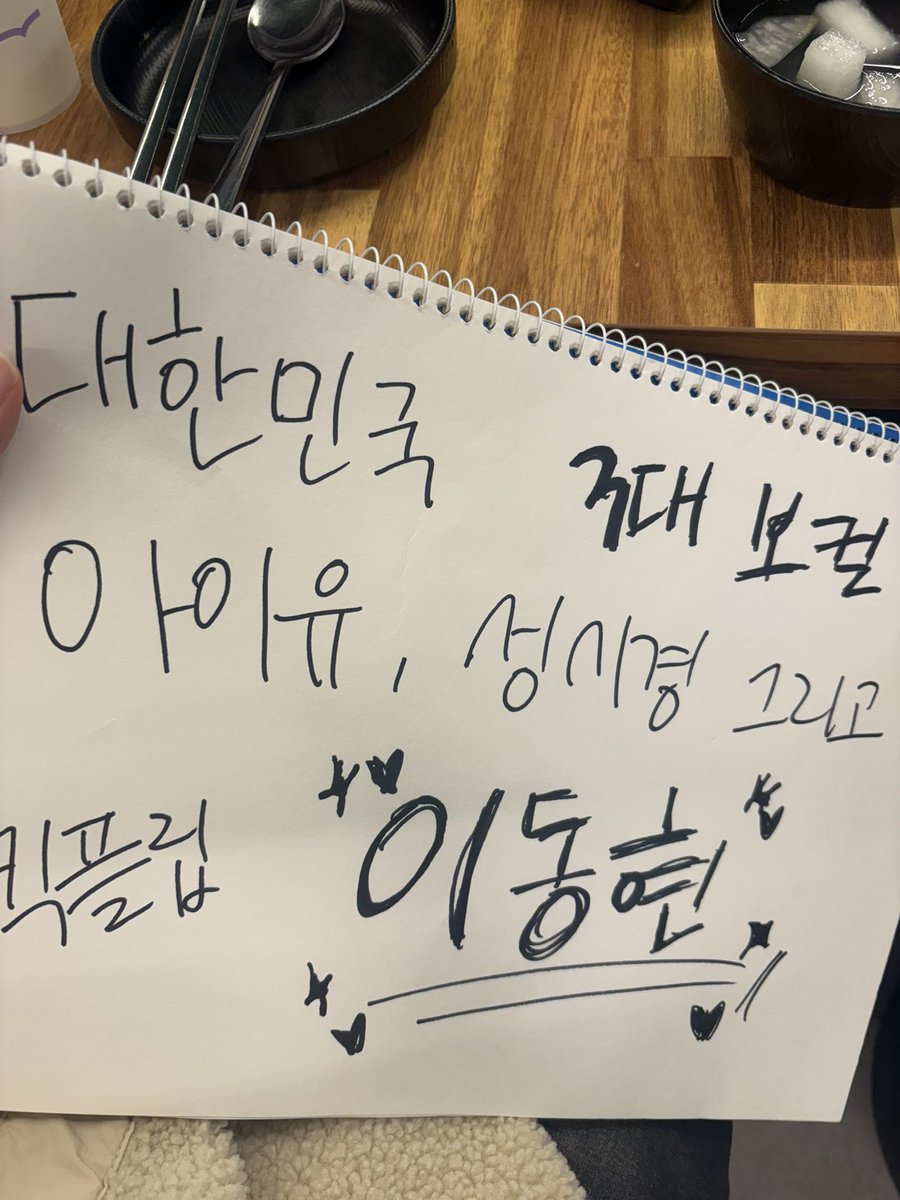 대한민국 3대 보컬
아이유, 성시경 그리고
킥플립 이동현